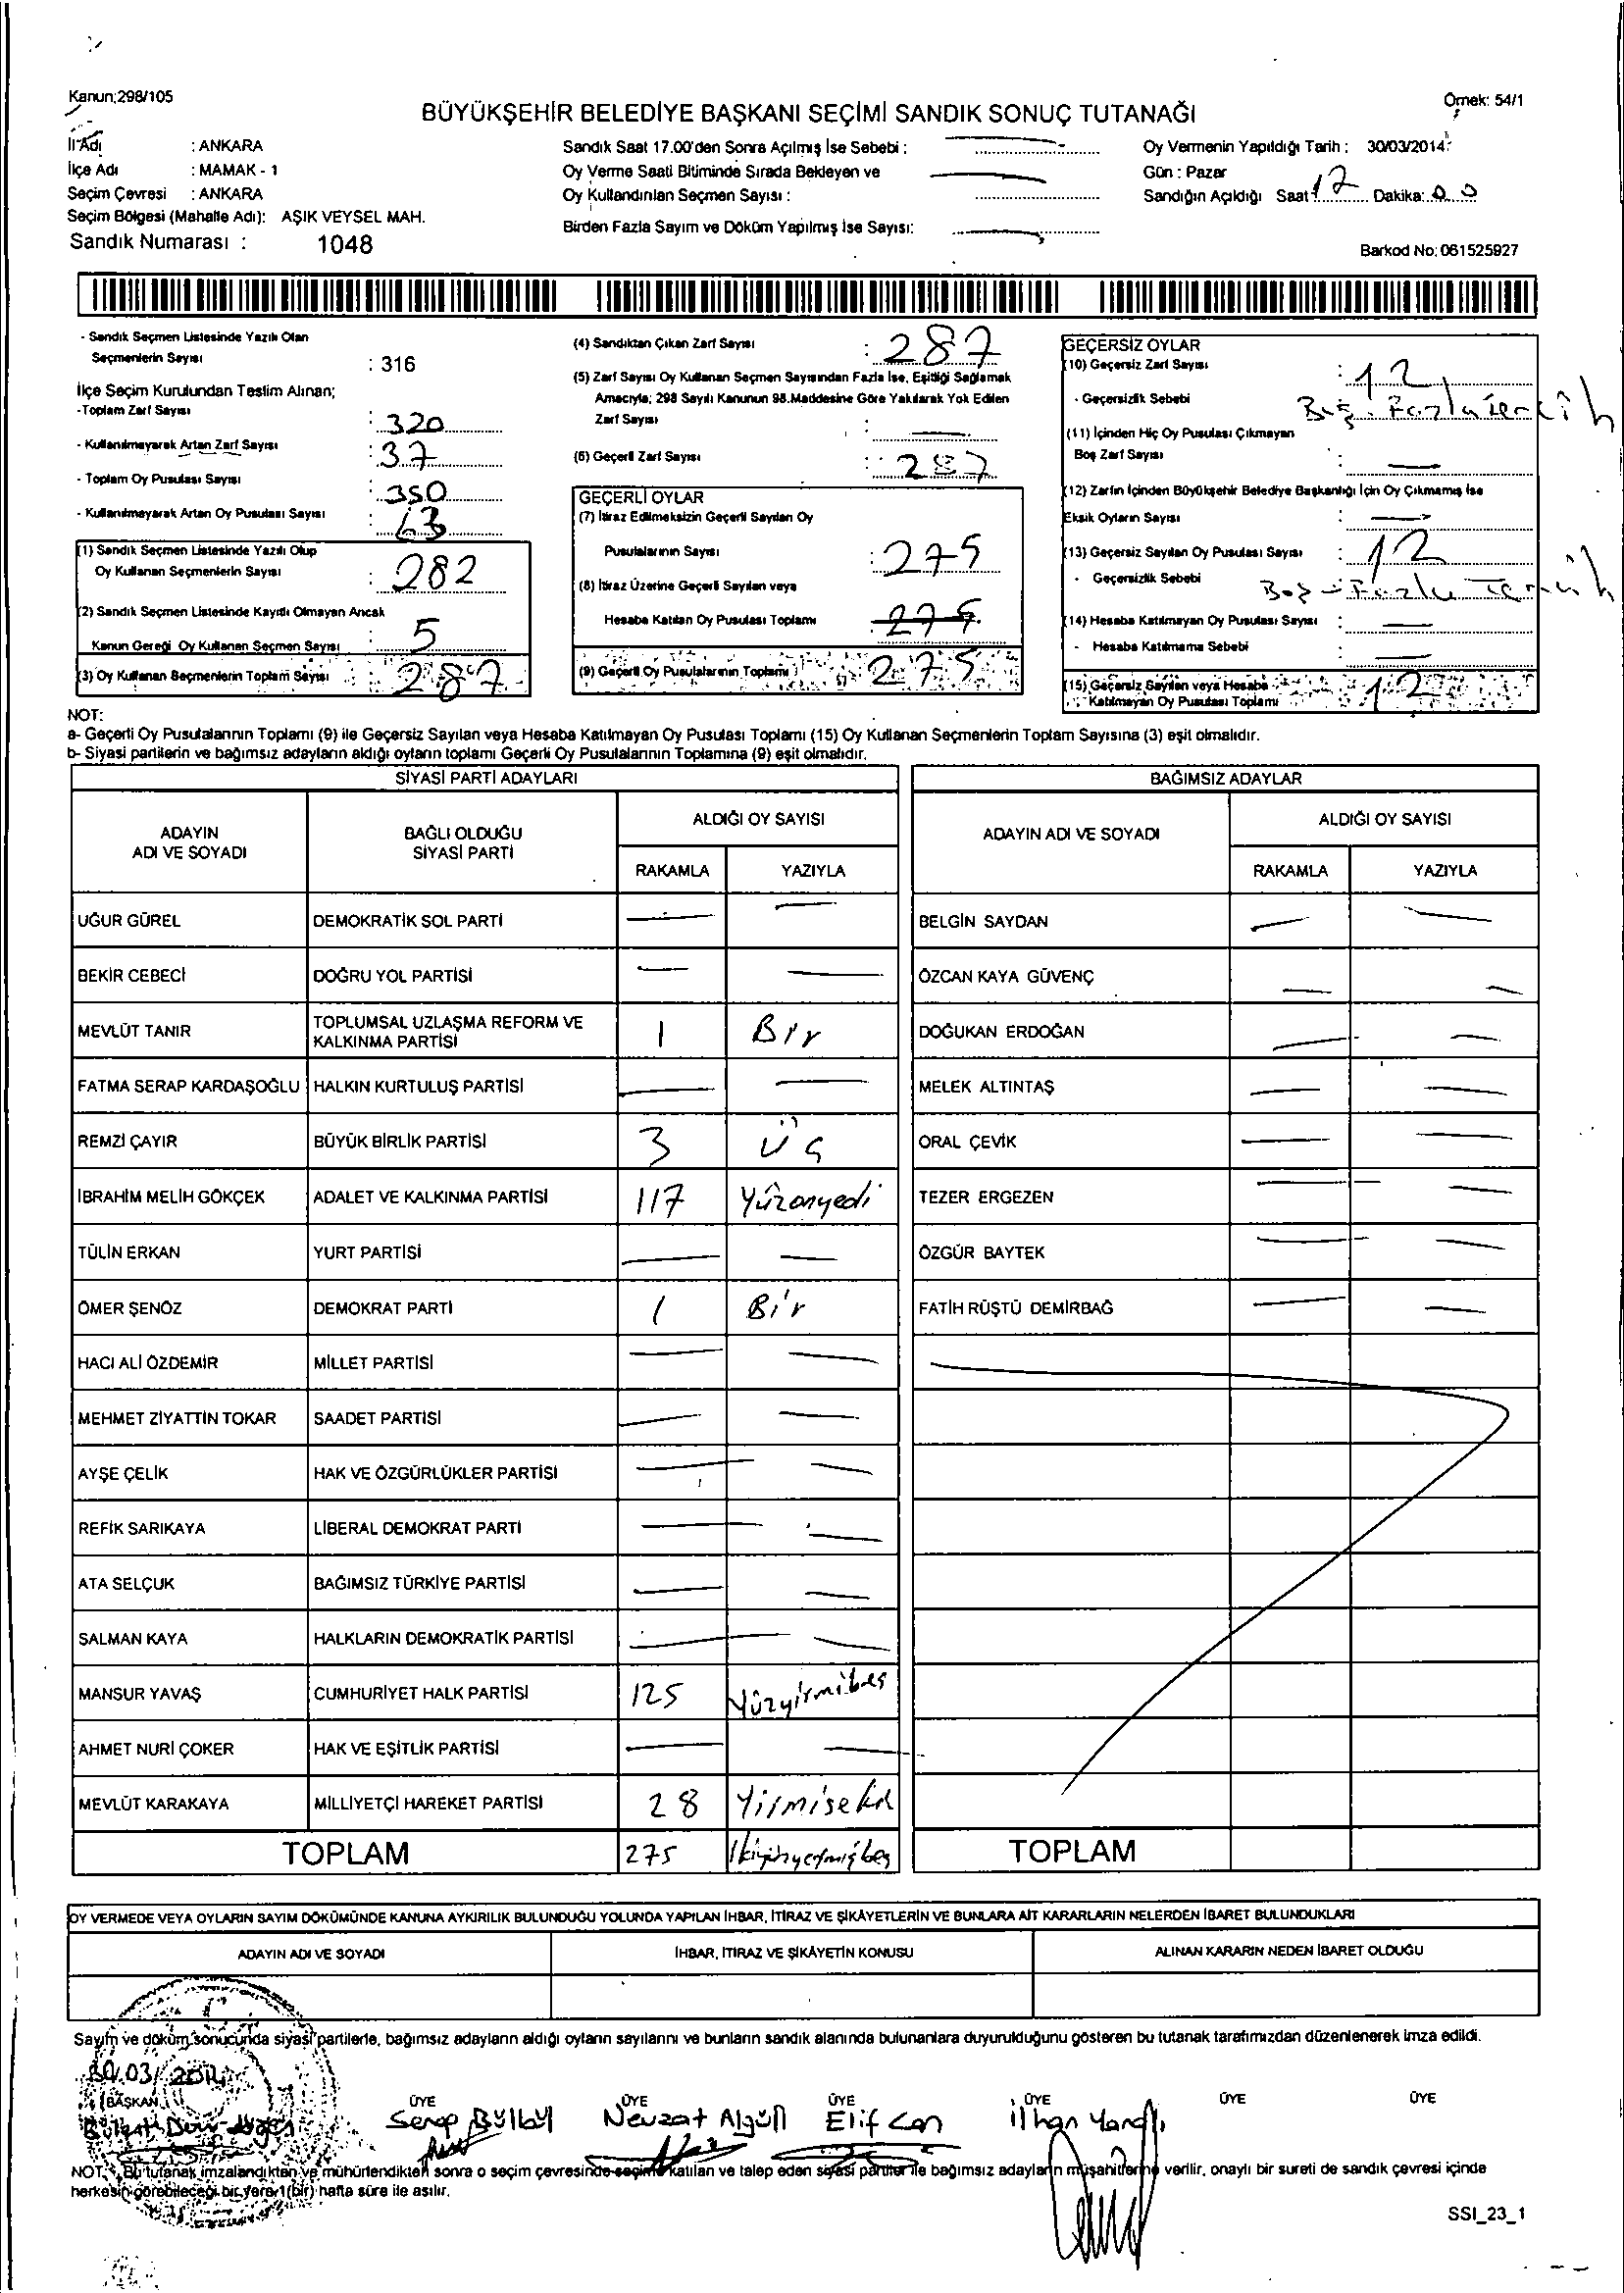 Kanun;298/105
Örnek: 54/1
BÜYÜKŞEHİR BELEDİYE BAŞKANI SEÇİMİ SANDIK SONUÇ TUTANAĞI
İl Adı : ANKARA
İlçe Adı : MAMAK - 1
Seçim Çevresi : ANKARA
Seçim Bölgesi (Mahalle Adı): AŞIK VEYSEL MAH.
Sandık Numarası : 1048
Sandık Saat 17.00'den Sonra Açılmış İse Sebebi :
Oy Verme Saati Bitiminde Sırada Bekleyen ve
Oy Kullandırılan Seçmen Sayısı :
Birden Fazla Sayım ve Döküm Yapılmış İse Sayısı:
Oy Vermenin Yapıldığı Tarih : 30/03/2014
Gün : Pazar
Sandığın Açıldığı Saat 17 Dakika: 00
Barkod No: 061525927
- Sandık Seçmen Listesinde Yazılı Olan
Seçmenlerin Sayısı : 316
İlçe Seçim Kurulundan Teslim Alınan;
-Toplam Zarf Sayısı : 320
- Kullanılmayarak Artan Zarf Sayısı : 37
- Toplam Oy Pusulası Sayısı : 350
- Kullanılmayarak Artan Oy Pusulası Sayısı : 63
(1) Sandık Seçmen Listesinde Yazılı Olup
Oy Kullanan Seçmenlerin Sayısı : 282
(2) Sandık Seçmen Listesinde Kayıtlı Olmayan Ancak
Kanun Gereği Oy Kullanan Seçmen Sayısı : 5
(3) Oy Kullanan Seçmenlerin Toplam Sayısı : 287
(4) Sandıktan Çıkan Zarf Sayısı : 287
(5) Zarf Sayısı Oy Kullanan Seçmen Sayısından Fazla İse, Eşitliği Sağlamak
Amacıyla; 298 Sayılı Kanunun 98.Maddesine Göre Yakılarak Yok Edilen
Zarf Sayısı :
(6) Geçerli Zarf Sayısı : 287
GEÇERLİ OYLAR
(7) İtiraz Edilmeksizin Geçerli Sayılan Oy
Pusulalarının Sayısı : 275
(8) İtiraz Üzerine Geçerli Sayılan veya
Hesaba Katılan Oy Pusulası Toplamı : 275
(9) Geçerli Oy Pusulalarının Toplamı : 275
GEÇERSİZ OYLAR
(10) Geçersiz Zarf Sayısı : 12
- Geçersizlik Sebebi Boş - Fazla tercih
(11) İçinden Hiç Oy Pusulası Çıkmayan
Boş Zarf Sayısı :
(12) Zarfın İçinden Büyükşehir Belediye Başkanlığı İçin Oy Çıkmamış İse
Eksik Oyların Sayısı :
(13) Geçersiz Sayılan Oy Pusulası Sayısı : 12
- Geçersizlik Sebebi Boş - Fazla Tercih
(14) Hesaba Katılmayan Oy Pusulası Sayısı :
- Hesaba Katılmama Sebebi :
(15) Geçersiz Sayılan veya Hesaba
Katılmayan Oy Pusulası Toplamı : 12
NOT:
a- Geçerli Oy Pusulalarının Toplamı (9) ile Geçersiz Sayılan veya Hesaba Katılmayan Oy Pusulası Toplamı (15) Oy Kullanan Seçmenlerin Toplam Sayısına (3) eşit olmalıdır.
b- Siyasi partilerin ve bağımsız adayların aldığı oyların toplamı Geçerli Oy Pusulalarının Toplamına (9) eşit olmalıdır.
SİYASİ PARTİ ADAYLARI
ADAYIN ADI VE SOYADI
BAĞLI OLDUĞU SİYASİ PARTİ
ALDIĞI OY SAYISI
RAKAMLA YAZIYLA
UĞUR GÜREL DEMOKRATİK SOL PARTİ
BEKİR CEBECİ DOĞRU YOL PARTİSİ
MEVLÜT TANIR TOPLUMSAL UZLAŞMA REFORM VE KALKINMA PARTİSİ 1 Bir
FATMA SERAP KARDAŞOĞLU HALKIN KURTULUŞ PARTİSİ
REMZİ ÇAYIR BÜYÜK BİRLİK PARTİSİ 3 Üç
İBRAHİM MELİH GÖKÇEK ADALET VE KALKINMA PARTİSİ 117 Yüzonyedi
TÜLİN ERKAN YURT PARTİSİ
ÖMER ŞENÖZ DEMOKRAT PARTİ 1 Bir
HACI ALİ ÖZDEMİR MİLLET PARTİSİ
MEHMET ZİYATTİN TOKAR SAADET PARTİSİ
AYŞE ÇELİK HAK VE ÖZGÜRLÜKLER PARTİSİ
REFİK SARIKAYA LİBERAL DEMOKRAT PARTİ
ATA SELÇUK BAĞIMSIZ TÜRKİYE PARTİSİ
SALMAN KAYA HALKLARIN DEMOKRATİK PARTİSİ
MANSUR YAVAŞ CUMHURİYET HALK PARTİSİ 125 Yüzyirmibeş
AHMET NURİ ÇOKER HAK VE EŞİTLİK PARTİSİ
MEVLÜT KARAKAYA MİLLİYETÇİ HAREKET PARTİSİ 28 Yirmisekiz
TOPLAM 275 İkiyüzyetmişbeş
BAĞIMSIZ ADAYLAR
ADAYIN ADI VE SOYADI
ALDIĞI OY SAYISI
RAKAMLA YAZIYLA
BELGİN SAYDAN
ÖZCAN KAYA GÜVENÇ
DOĞUKAN ERDOĞAN
MELEK ALTINTAŞ
ORAL ÇEVİK
TEZER ERGEZEN
ÖZGÜR BAYTEK
FATİH RÜŞTÜ DEMİRBAĞ
TOPLAM
OY VERMEDE VEYA OYLARIN SAYIM DÖKÜMÜNDE KANUNA AYKIRILIK BULUNDUĞU YOLUNDA YAPILAN İHBAR, İTİRAZ VE ŞİKÂYETLERİN VE BUNLARA AİT KARARLARIN NELERDEN İBARET BULUNDUKLARI
ADAYIN ADI VE SOYADI İHBAR, İTİRAZ VE ŞİKÂYETİN KONUSU ALINAN KARARIN NEDEN İBARET OLDUĞU
Sayım ve döküm sonucunda siyasi partilerle, bağımsız adayların aldığı oyların sayılarını ve bunların sandık alanında bulunanlara duyurulduğunu gösteren bu tutanak tarafımızdan düzenlenerek imza edildi.
30/03/2014
BAŞKAN ÜYE ÜYE ÜYE ÜYE ÜYE ÜYE
Bülent Serap Bülbül Nevzat Algül Elif Can İlhan
NOT: Bu tutanak imzalandıktan ve mühürlendikten sonra o seçim çevresinde seçime katılan ve talep eden siyasi partiler ile bağımsız adayların müşahitlerine verilir, onaylı bir sureti de sandık çevresi içinde
herkesin görebileceği bir yere 1(bir) hafta süre ile asılır.
SSI_23_1